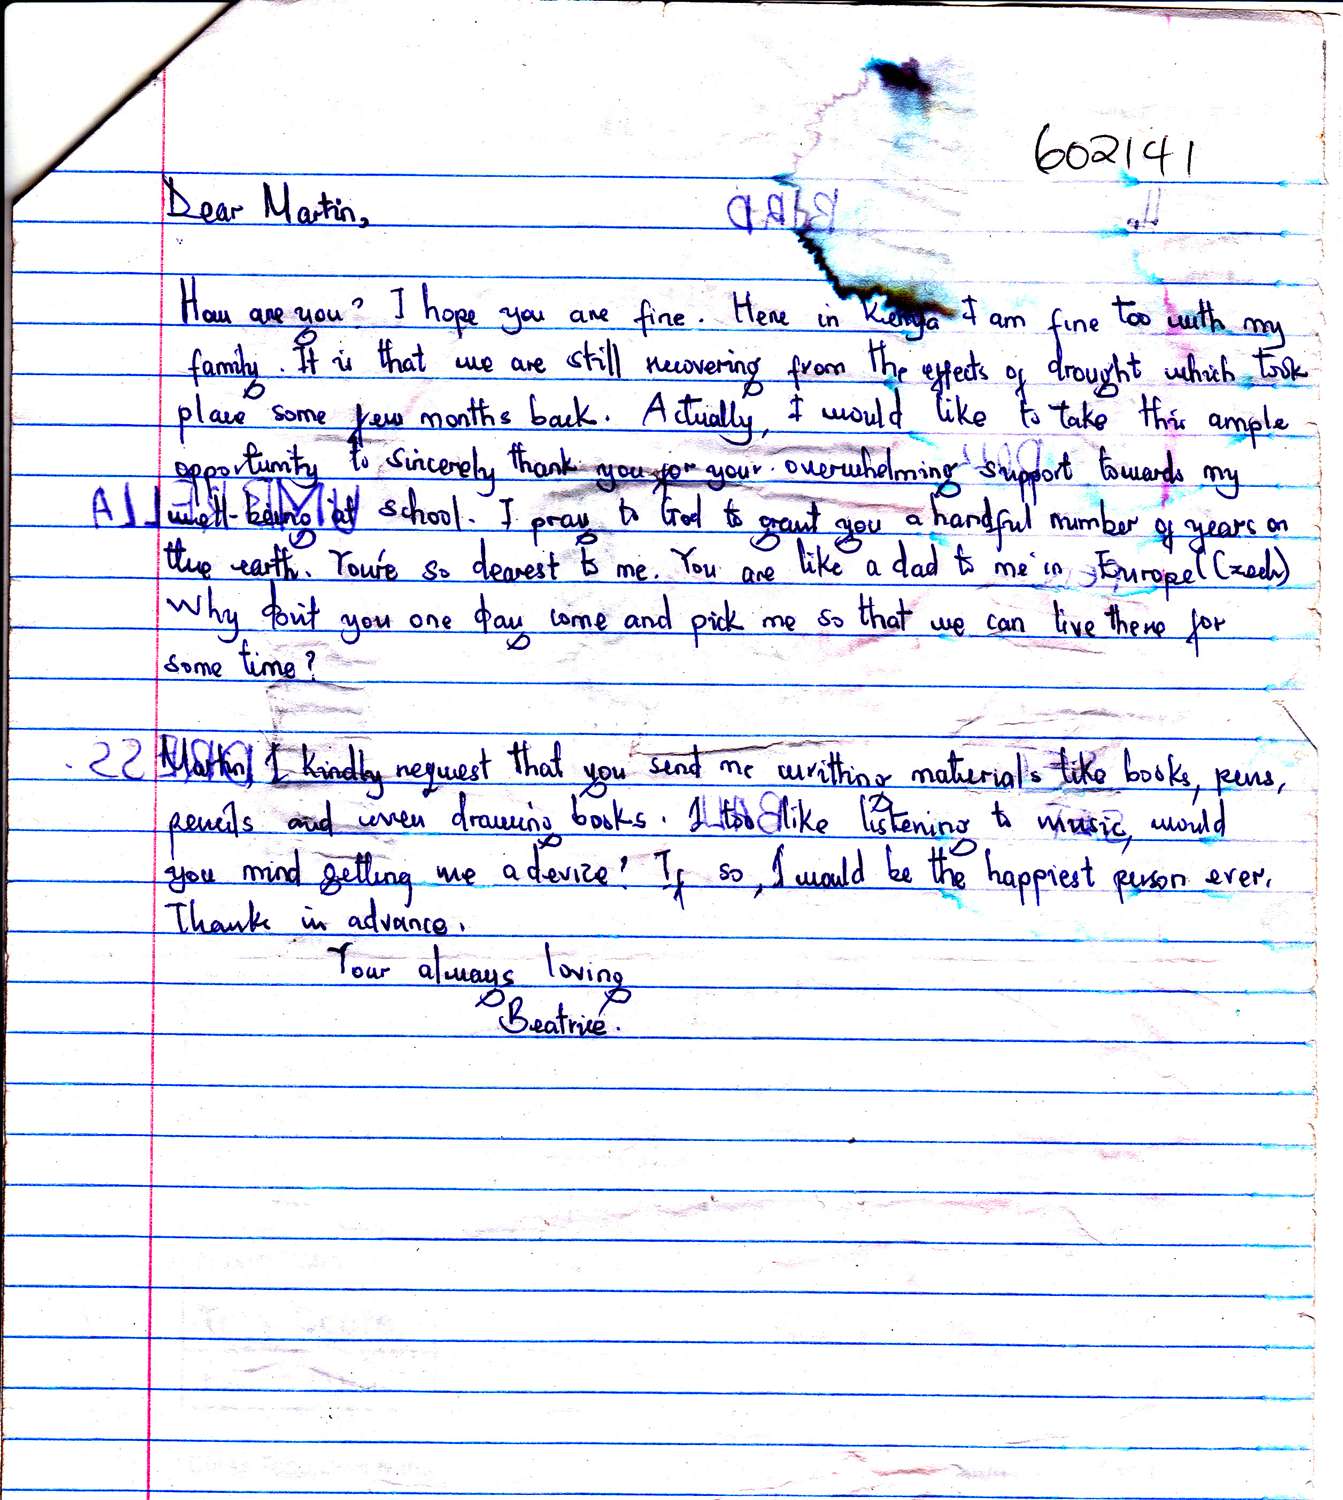 602141
Dear Martin,
How are you? I hope you are fine. Here in Kenya I am fine too with my
family. It is that we are still recovering from the effects of drought which took
place some few months back. Actually, I would like to take this ample
opportunity to sincerely thank you for your overwhelming support towards my
well-being at school. I pray to God to grant you a handful number of years on
the earth. You're so dearest to me. You are like a dad to me in Europe (Czech)
Why don't you one day come and pick me so that we can live there for
some time?
Martin, I kindly request that you send me writting materials like books, pens,
pencils and even drawing books. I too like listening to music, would
you mind getting me a device? If so, I would be the happiest person ever.
Thanks in advance.
Your always loving
Beatrice.